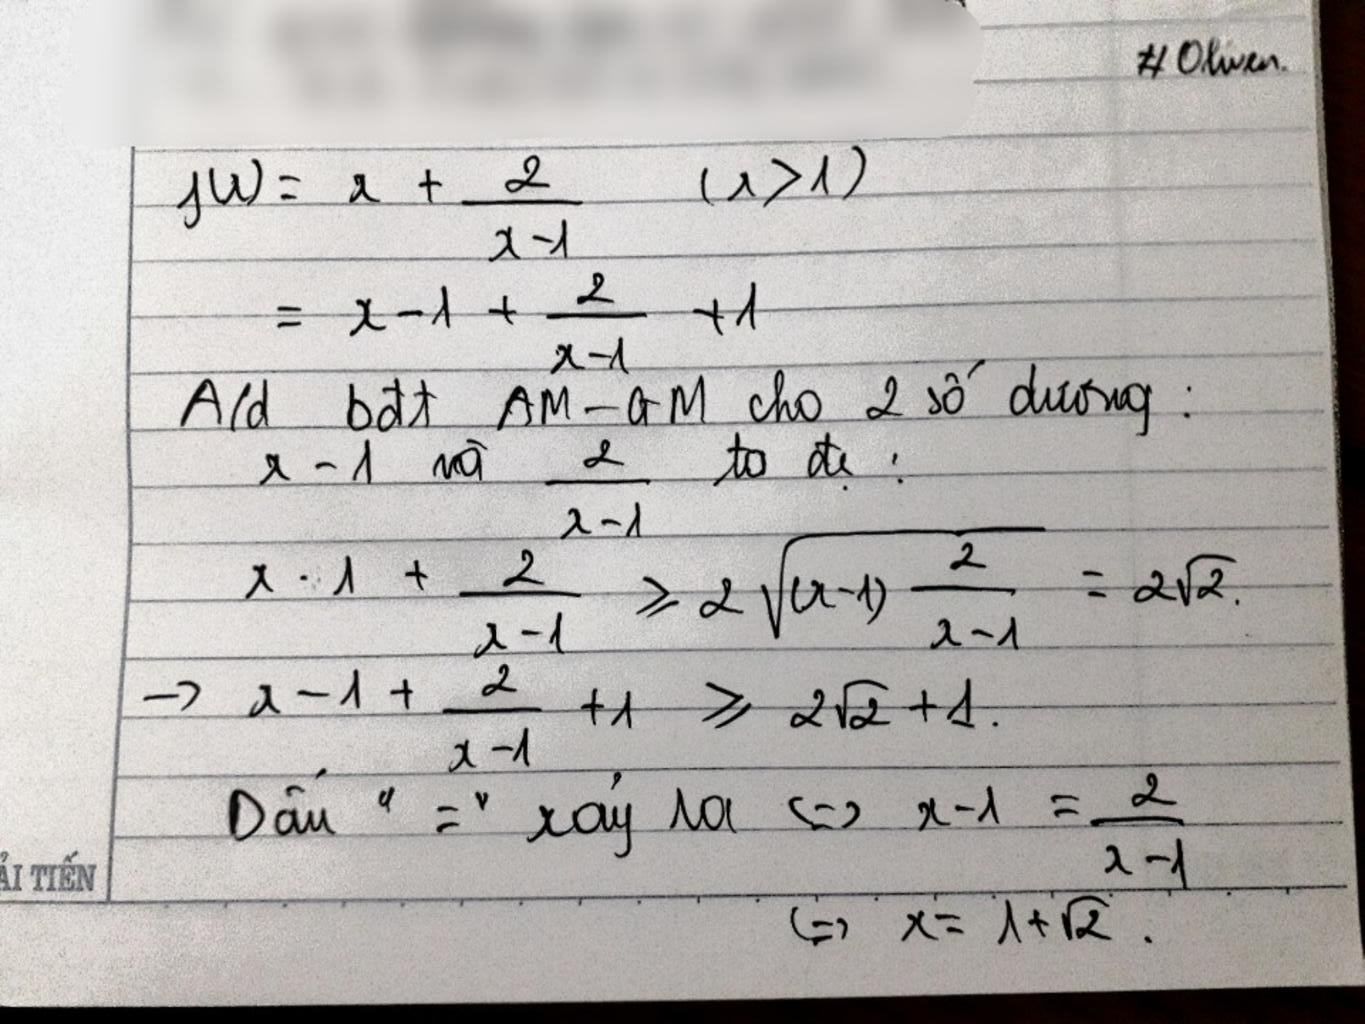 # Oliven.
f(x) = x + \frac{2}{x-1} (x>1)
= x-1 + \frac{2}{x-1} +1
A/d bđt AM-GM cho 2 số dương:
x-1 và \frac{2}{x-1} ta đc:
x-1 + \frac{2}{x-1} ≥ 2\sqrt{(x-1)\frac{2}{x-1}} = 2√2.
→ x-1 + \frac{2}{x-1} +1 ≥ 2√2 +1.
Dấu "=" xảy ra <=> x-1 = \frac{2}{x-1}
<=> x = 1+√2.
ẢI TIẾN